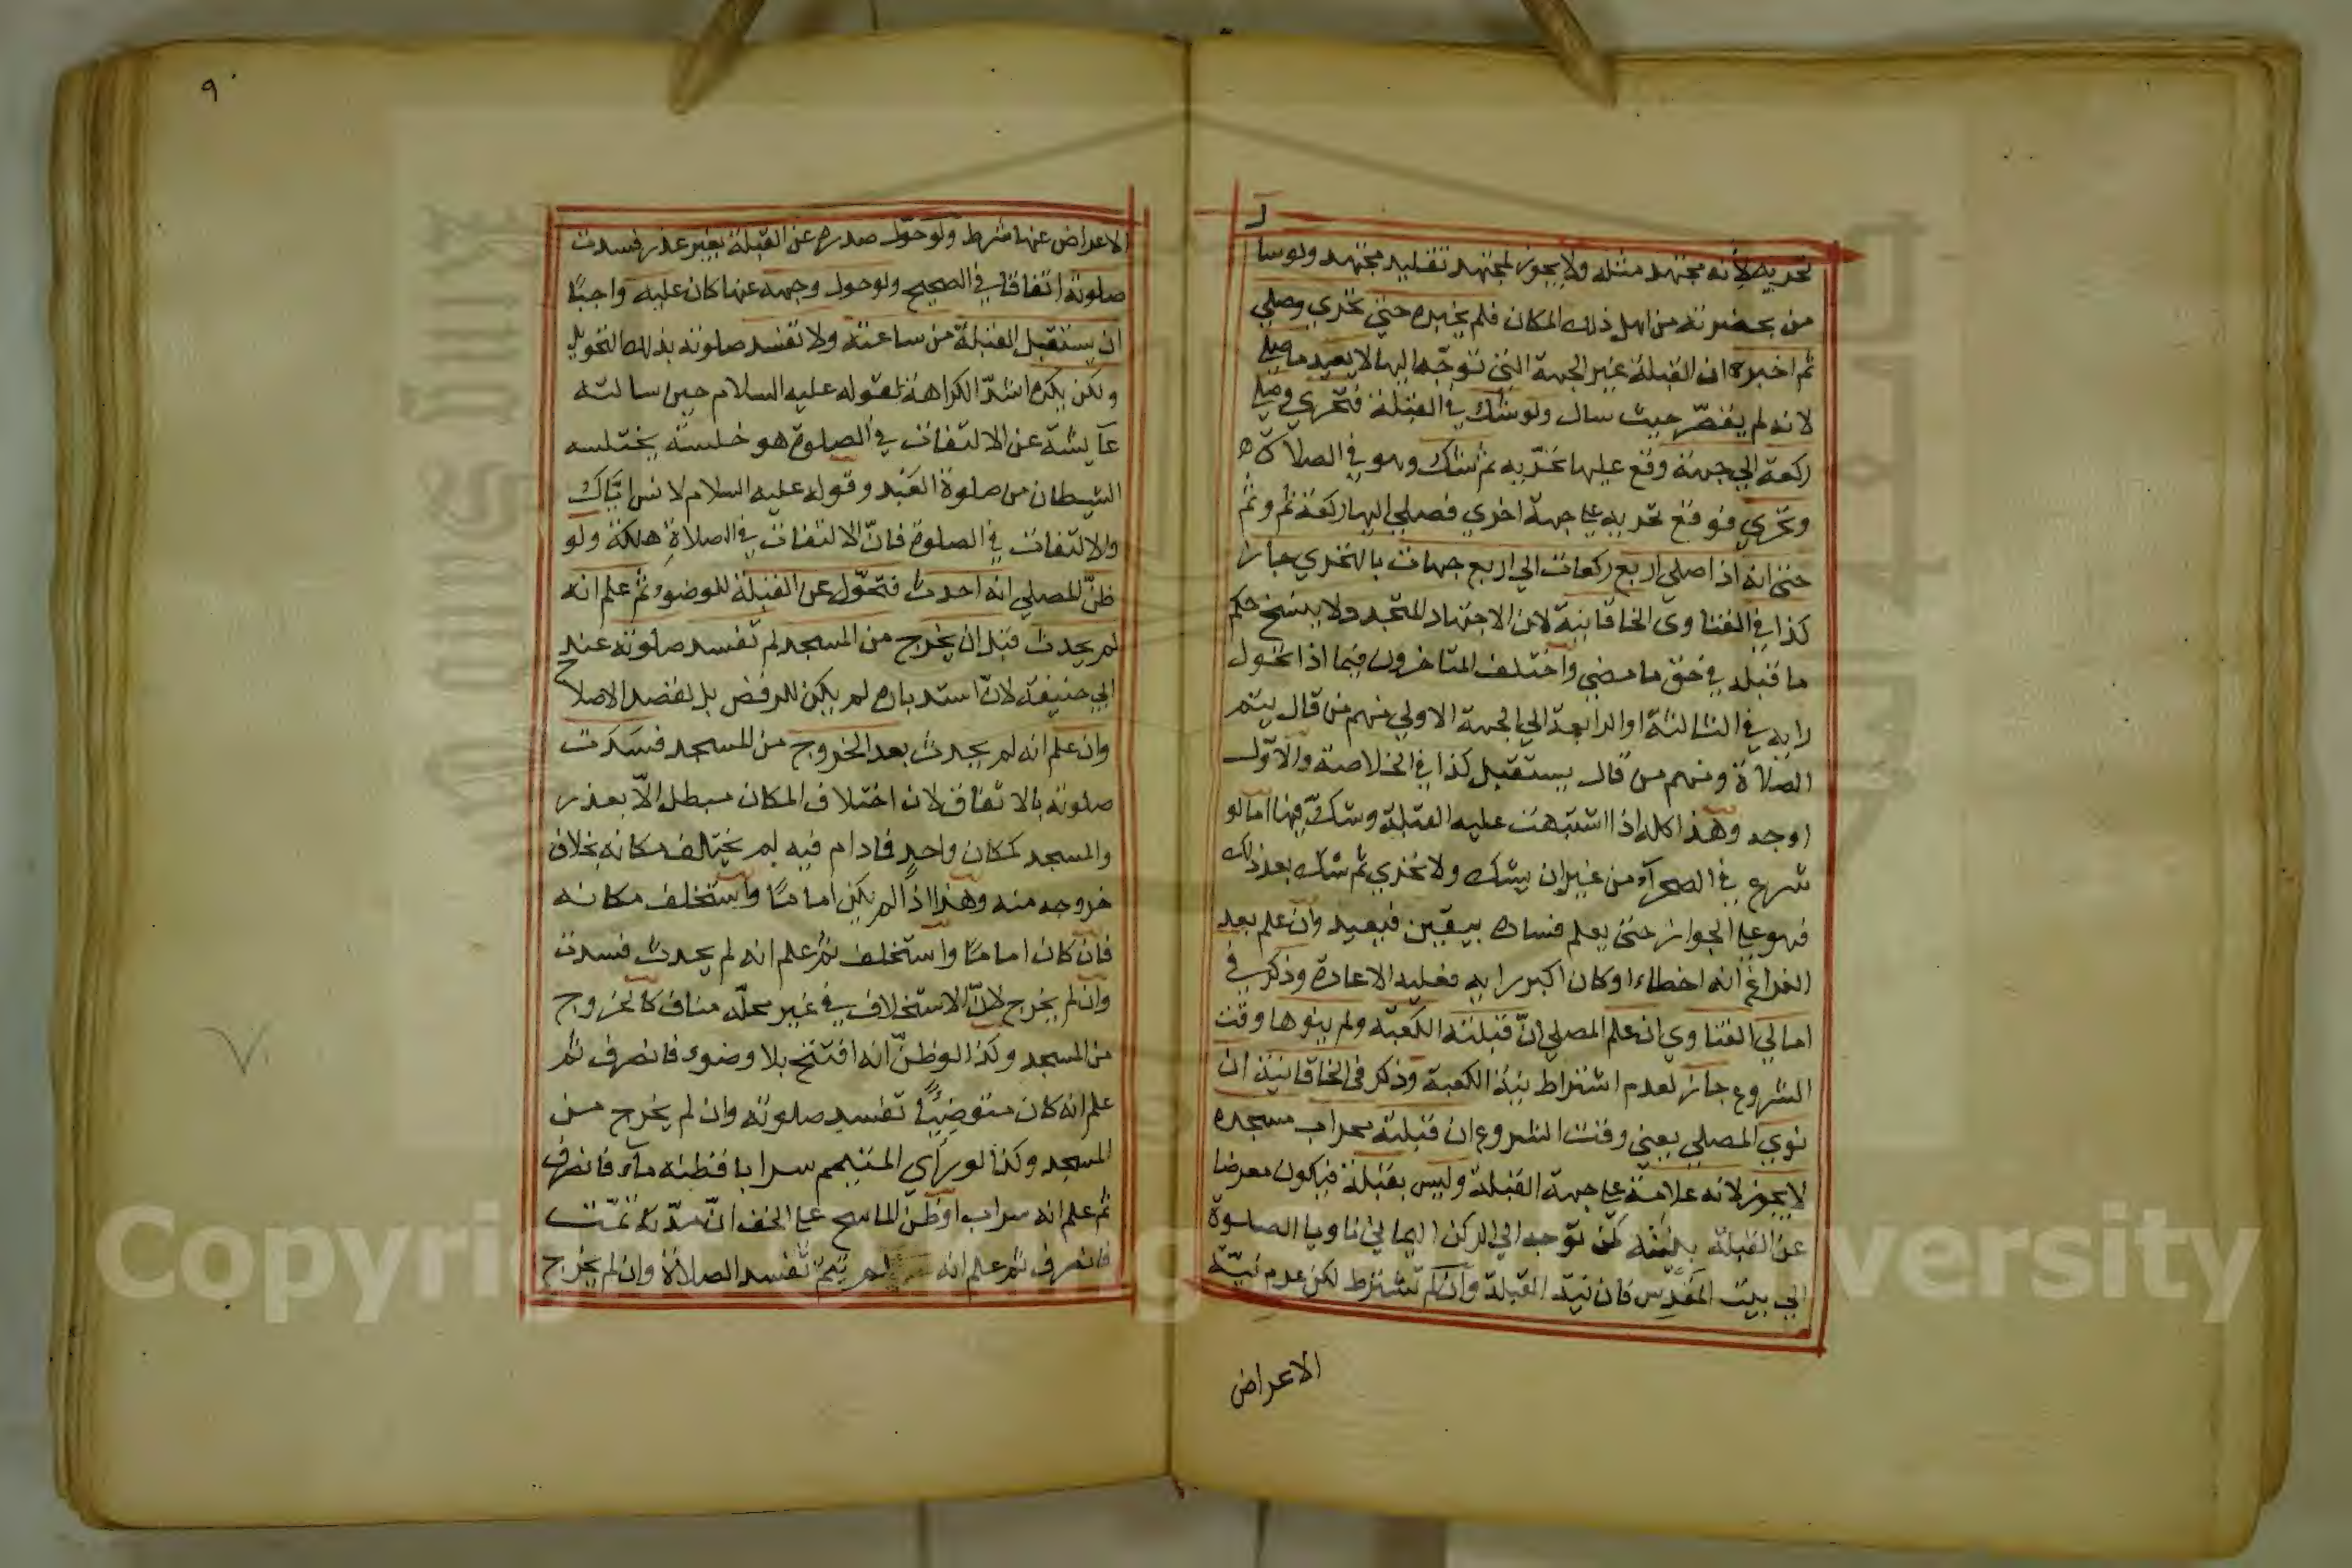 ل
تحريه لأنه مجتهد مثله ولا يجوز لمجتهد تقليد مجتهد ولو سا
من بحضرته من اهل ذلك المكان فلم يخبره حتي تحري وصلي
ثم اخبره ان القبلة غير الجهة التي توجه اليها لا يعيد ما صلي
لانه لم يقصّر حيث سال ولو شك في القبلة فتحري وصلي
ركعة الي جهة وقع عليها تحرّيه ثم شك وهو في الصلاة
وتحري فوقع تحريه علي جهة اخري فصلي اليها ركعة ثم وثم
حتي انه اذا صلي اربع ركعات الي اربع جهات بالتحري جاز
كذا في الفتاوى الخاقانية لان الاجتهاد المتجدد لا ينسخ حكم
ما قبله في حق ما مضي واختلف المتاخرون فيما اذا تحول
رايه في الثالثة او الرابعة الي الجهة الاولي منهم من قال يتم
الصلاة ومنهم من قال يستقبل كذا في الخلاصة والاوّل
اوجه وهذا كله اذا اشتبهت عليه القبلة وشك فيها اما لو
شرع في الصحرآء من غير ان يشك ولا تحري ثم شك بعد ذلك
فهو علي الجواز حتي يعلم فساده بيقين فيعيد وان علم بعد
الفراغ انه اخطاء او كان اكبر رايه فعليه الاعادة وذكر في
امالي الفتاوي ان علم المصلي انّ قبلته الكعبة ولم ينوها وقت
الشروع جاز لعدم اشتراط نية الكعبة وذكر في الخاقانية ان
نوي المصلي يعني وقت الشروع ان قبلته محراب مسجده
لا يجوز لانه علامة علي جهة القبلة وليس بقبلة فيكون معرضا
عن القبلة بنيته كمن توجه الي الركن اليماني ناويا الصلوة
الي بيت المقدس فان نية القبلة وان لم تشترط لكن عدم نيّة
الاعراض
٩
الاعراض عنها شرط ولو حوّل صدره عن القبلة بغير عذر فسدت
صلوته اتفاقا في الصحيح ولو حول وجهه عنها كان عليه واجبًا
ان يستقبل القبلة من ساعته ولا تفسد صلوته بذلك التحويل
ولكن يكره اشدّ الكراهة لقوله عليه السلام حين سالته
عآيشة عن الالتفات في الصلوة هو خلسة يختلسه
الشيطان من صلوة العبد وقوله عليه السلام لانس ايّاك
والالتفات في الصلوة فانّ الالتفات في الصلاة هلكة ولو
ظنّ المصلي انه احدث فتحوّل عن القبلة للوضوء ثم علم انه
لم يحدث قبل ان يخرج من المسجد لم تفسد صلوته عند
ابي حنيفة لانّ استدباره لم يكن للرفض بل لقصد الاصلاح
وان علم انه لم يحدث بعد الخروج من المسجد فسدت
صلوته بالاتفاق لان اختلاف المكان مبطل الّا بعذر
والمسجد كمكان واحد فمادام فيه لم يختلف مكانه بخلاف
خروجه منه وهذا اذا لم يكن امامًا واستخلف مكانه
فان كان امامًا واستخلف ثم علم انه لم يحدث فسدت
وان لم يخرج لانّ الاستخلاف في غير محلّه مناف كالخروج
من المسجد وكذا لو ظنّ انه افتتح بلا وضوء فانصرف ثم
علم انه كان متوضيًا تفسد صلوته وان لم يخرج من
المسجد وكذا لو رأي المتيمم سرابا فظنه مآء فانصرف
ثم علم انه سراب او ظنّ الماسح علي الخف انّ مدّته تمّت
فانصرف ثم علم انه لم تتمّ تفسد الصلاة وان لم يخرج